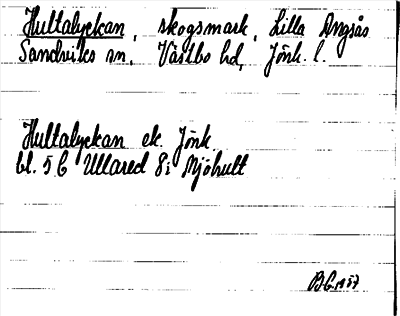 Hultalyckan, skogsmark, Lilla Angsås
Sandviks sn, Västbo hd, Jönk. l.
Hultalyckan ek. Jönk.
bl. 5 C Ullared 8i Mjöhult